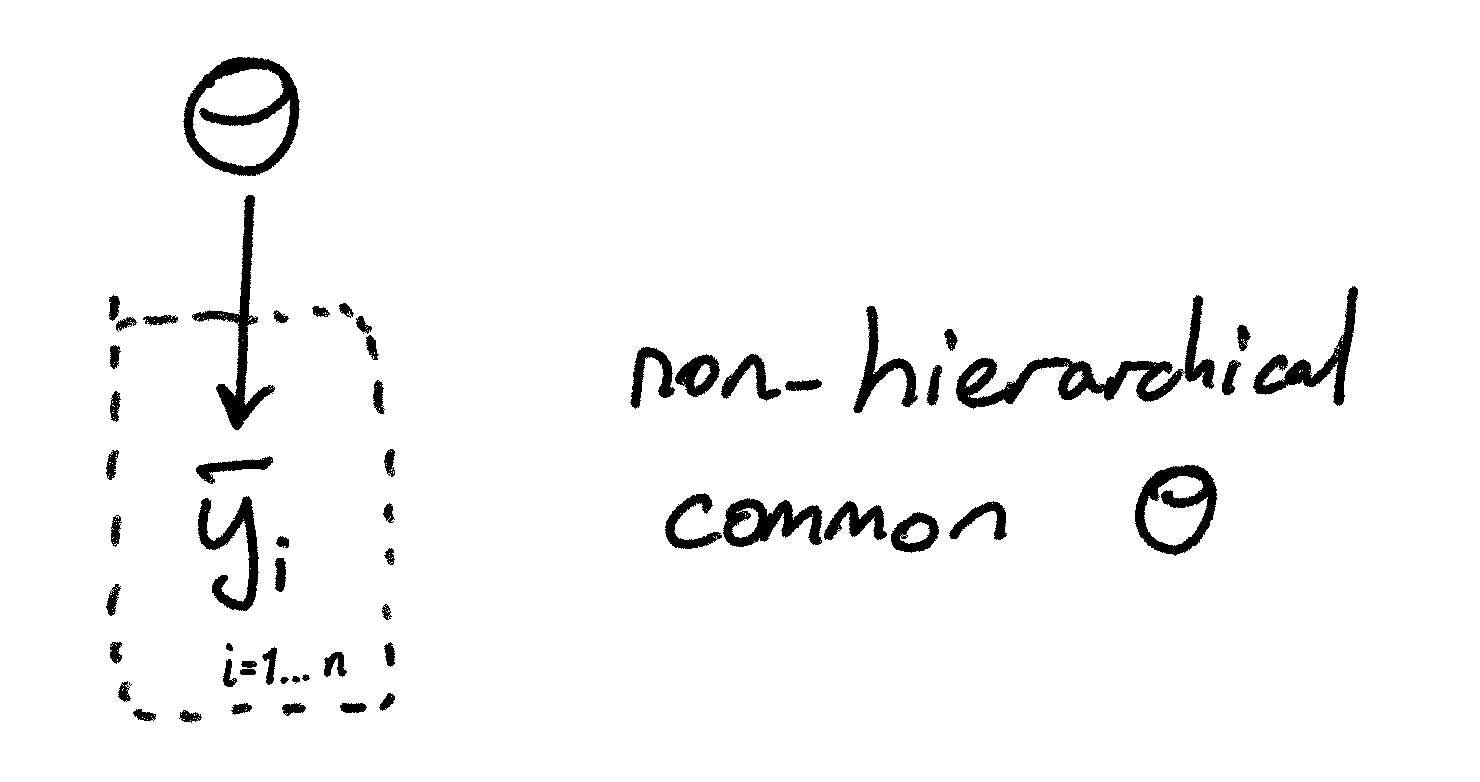 θ
ȳᵢ
i=1... n
non-hierarchical
common θ